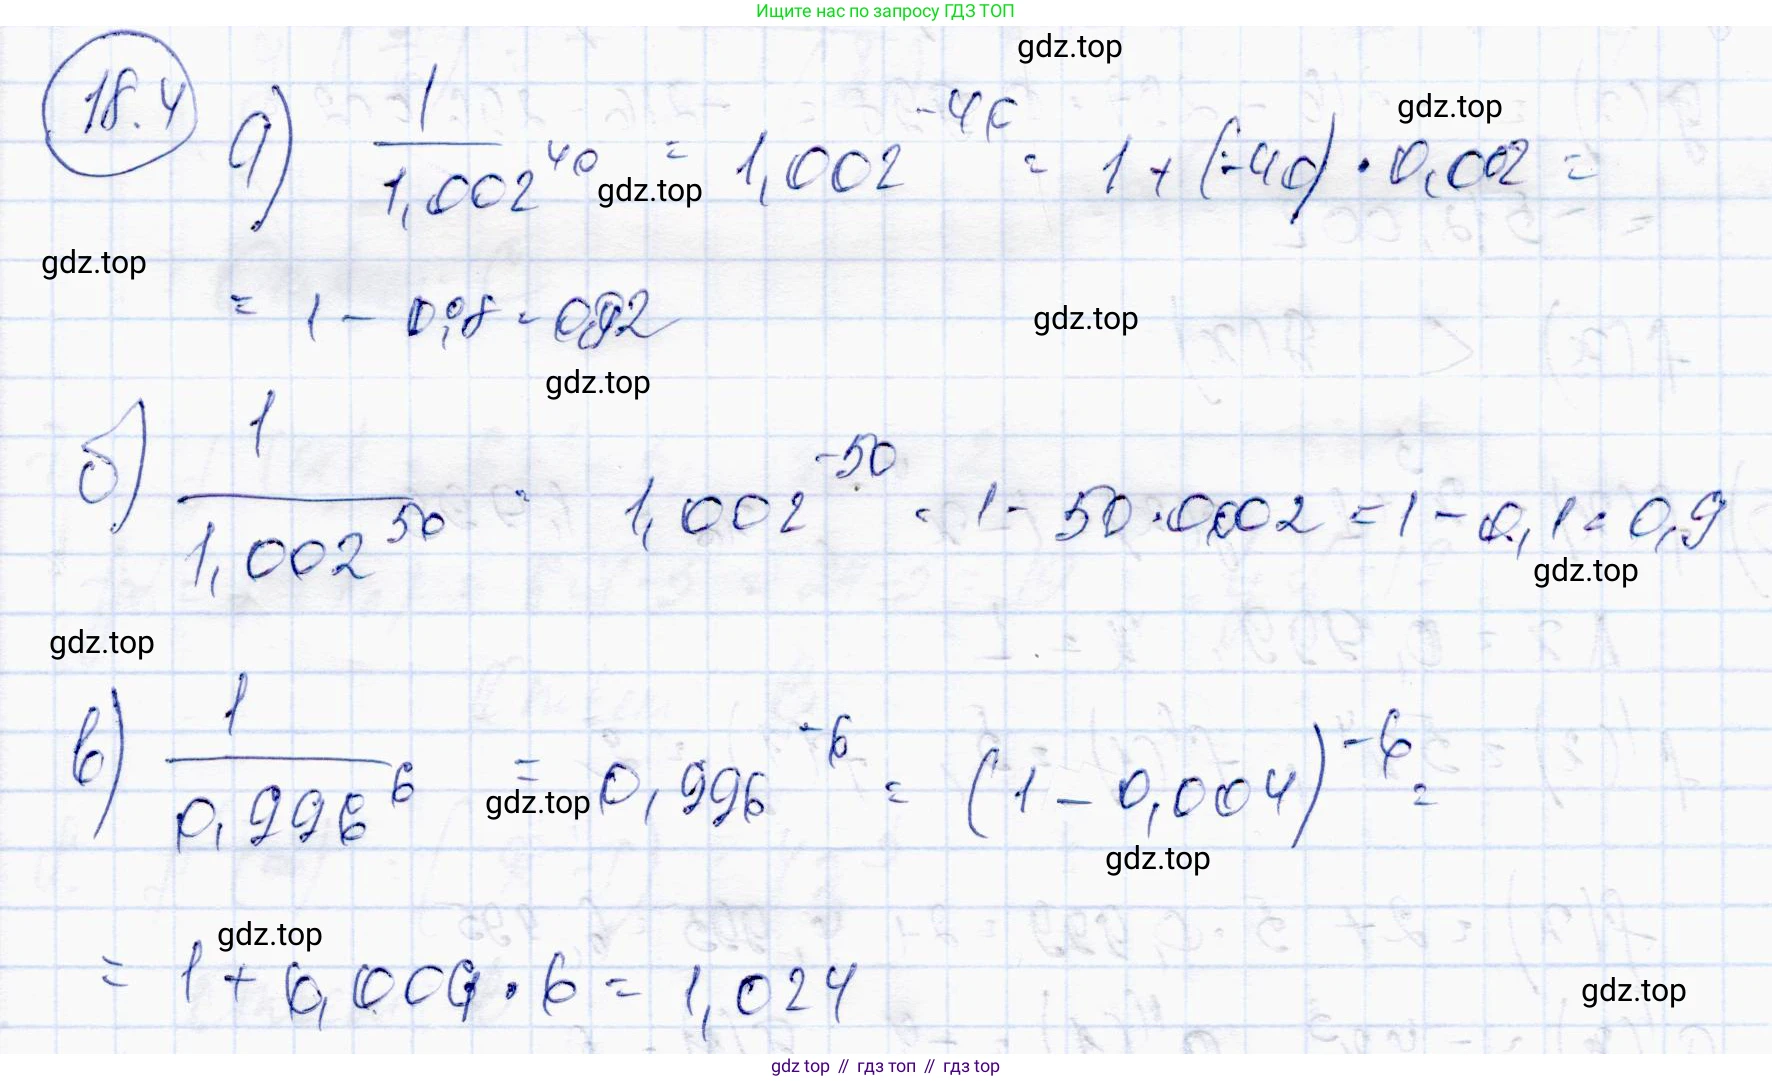 Ищите нас по запросу ГДЗ ТОП
gdz.top
18.4
gdz.top
а) 1/1,002^40 = 1,002^-40 = 1 + (-40) · 0,002 =
gdz.top
gdz.top
= 1 - 0,08 = 0,92
gdz.top
gdz.top
б) 1/1,002^50 = 1,002^-50 = 1 - 50 · 0,002 = 1 - 0,1 = 0,9
gdz.top
gdz.top
в) 1/0,996^6 = 0,996^-6 = (1 - 0,004)^-6 =
gdz.top
gdz.top
gdz.top
= 1 + 0,004 · 6 = 1,024
gdz.top
gdz.top // гдз топ // гдз.top